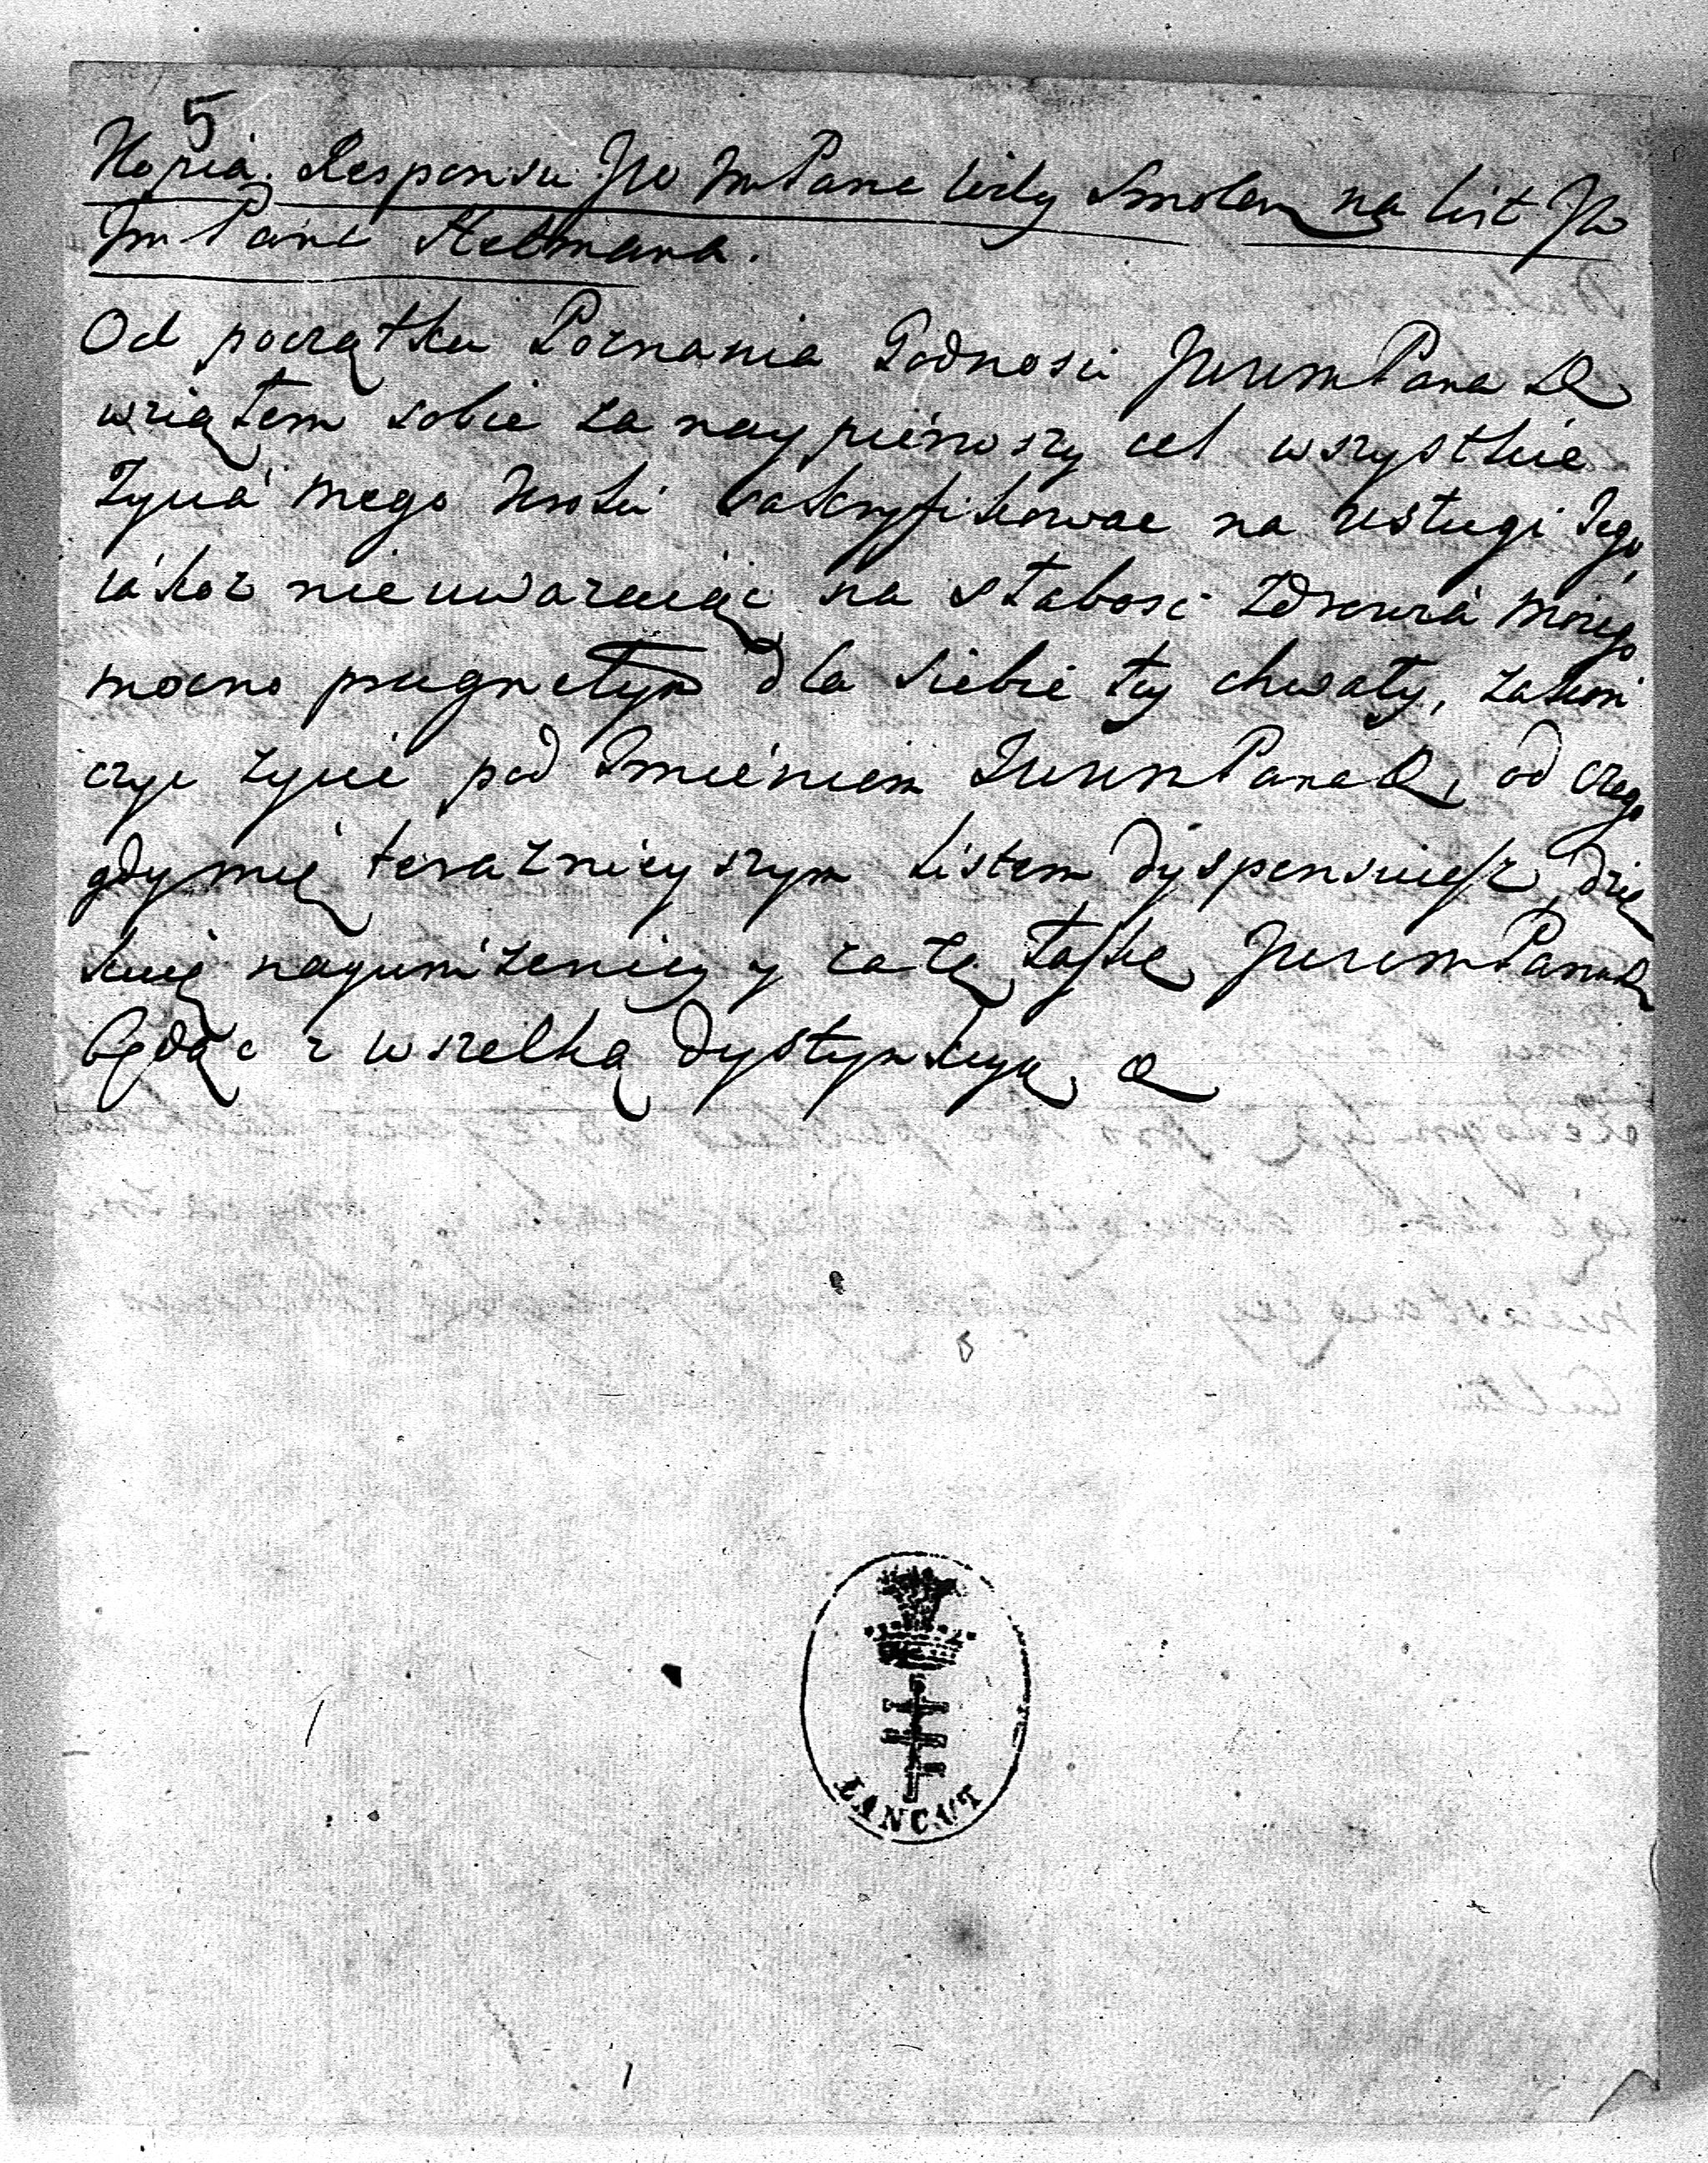 5
Kopia Responsu JW ImPana Wdy Smolen na list JW
ImPana Hetmana.
Od początku Poznania Godnosci JWWMPana D
wziąłem sobie za naypierwszy cel wszystkie
życia mego kroki sakryfikowac na usługi Jego,
iakoż nieuwazaiąc na słabosc zdrowia moiego
mocno pragnełym dla siebie tey chwały, zakon
czyc życie pod Imieniem JWWMPana D, od czego
gdy mię teraznieyszym Listem dyspensuiesz, dzię
kuię nayunizeniey y całę łaskę JWWMPana D
będąc z wszelką dystynkcyą
ŁANCUT